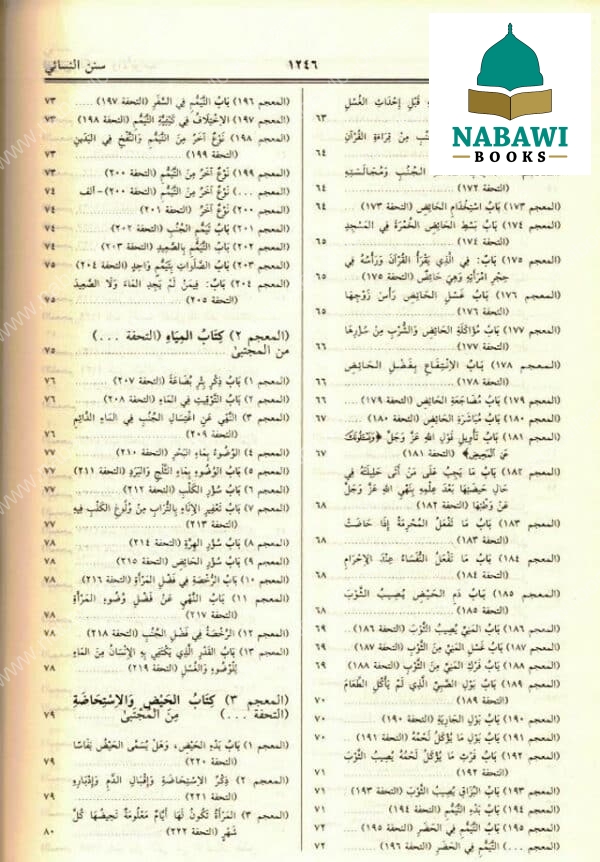 سنن النسائي
١٢٤٦
NABAWI
BOOKS
قَبْلَ إِحْدَاثِ الْغُسْلِ
٦٣
مِنْ قِرَاءَةِ الْقُرْآنِ
٦٤
الْجُنُبِ وَمُجَالَسَتِهِ
(التحفة ١٧٢) ٦٤
(المعجم ١٧٣) بَابُ اسْتِخْدَامِ الْحَائِضِ (التحفة ١٧٣) ٦٤
(المعجم ١٧٤) بَابُ بَسْطِ الْحَائِضِ الْخُمْرَةَ فِي الْمَسْجِدِ
(التحفة ١٧٤) ٦٥
(المعجم ١٧٥) بَابٌ: فِي الَّذِي يَقْرَأُ الْقُرْآنَ وَرَأْسُهُ فِي
حِجْرِ امْرَأَتِهِ وَهِيَ حَائِضٌ (التحفة ١٧٥) ٦٥
(المعجم ١٧٦) بَابُ غَسْلِ الْحَائِضِ رَأْسَ زَوْجِهَا
(التحفة ١٧٦) ٦٥
(المعجم ١٧٧) بَابُ مُؤَاكَلَةِ الْحَائِضِ وَالشُّرْبِ مِنْ سُؤْرِهَا
(التحفة ١٧٧) ٦٦
(المعجم ١٧٨) بَابُ الِانْتِفَاعِ بِفَضْلِ الْحَائِضِ
(التحفة ١٧٨) ٦٦
(المعجم ١٧٩) بَابُ مُضَاجَعَةِ الْحَائِضِ (التحفة ١٧٩) ٦٦
(المعجم ١٨٠) بَابُ مُبَاشَرَةِ الْحَائِضِ (التحفة ١٨٠) ٦٧
(المعجم ١٨١) بَابُ تَأْوِيلِ قَوْلِ اللهِ عَزَّ وَجَلَّ ﴿وَيَسْئَلُونَكَ
عَنِ الْمَحِيضِ﴾ (التحفة ١٨١) ٦٧
(المعجم ١٨٢) بَابُ مَا يَجِبُ عَلَى مَنْ أَتَى حَلِيلَتَهُ فِي
حَالِ حَيْضَتِهَا بَعْدَ عِلْمِهِ بِنَهْيِ اللهِ عَزَّ وَجَلَّ
عَنْ وَطْئِهَا (التحفة ١٨٢) ٦٨
(المعجم ١٨٣) بَابُ مَا تَفْعَلُ الْمُحْرِمَةُ إِذَا حَاضَتْ
(التحفة ١٨٣) ٦٨
(المعجم ١٨٤) بَابُ مَا تَفْعَلُ النُّفَسَاءُ عِنْدَ الْإِحْرَامِ
(التحفة ١٨٤) ٦٨
(المعجم ١٨٥) بَابُ دَمِ الْحَيْضِ يُصِيبُ الثَّوْبَ
(التحفة ١٨٥) ٦٨
(المعجم ١٨٦) بَابُ الْمَنِيِّ يُصِيبُ الثَّوْبَ (التحفة ١٨٦) ٦٩
(المعجم ١٨٧) بَابُ غَسْلِ الْمَنِيِّ مِنَ الثَّوْبِ (التحفة ١٨٧) ٦٩
(المعجم ١٨٨) بَابُ فَرْكِ الْمَنِيِّ مِنَ الثَّوْبِ (التحفة ١٨٨) ٦٩
(المعجم ١٨٩) بَابُ بَوْلِ الصَّبِيِّ الَّذِي لَمْ يَأْكُلِ الطَّعَامَ
(التحفة ١٨٩) ٧٠
(المعجم ١٩٠) بَابُ بَوْلِ الْجَارِيَةِ (التحفة ١٩٠) ٧٠
(المعجم ١٩١) بَابُ بَوْلِ مَا يُؤْكَلُ لَحْمُهُ (التحفة ١٩١) ٧٠
(المعجم ١٩٢) بَابُ فَرْثِ مَا يُؤْكَلُ لَحْمُهُ يُصِيبُ الثَّوْبَ
(التحفة ١٩٢) ٧١
(المعجم ١٩٣) بَابُ الْبُزَاقِ يُصِيبُ الثَّوْبَ (التحفة ١٩٣) ٧١
(المعجم ١٩٤) بَابُ بَدْءِ التَّيَمُّمِ (التحفة ١٩٤) ٧١
(المعجم ١٩٥) بَابُ التَّيَمُّمِ فِي الْحَضَرِ (التحفة ١٩٥) ٧٢
(المعجم ...) التَّيَمُّمِ فِي الْحَضَرِ (التحفة ١٩٦) ٧٢
(المعجم ١٩٦) بَابُ التَّيَمُّمِ فِي السَّفَرِ (التحفة ١٩٧) ٧٣
(المعجم ١٩٧) الِاخْتِلَافُ فِي كَيْفِيَّةِ التَّيَمُّمِ (التحفة ١٩٨) ٧٣
(المعجم ١٩٨) نَوْعٌ آخَرُ مِنَ التَّيَمُّمِ وَالنَّفْخِ فِي الْيَدَيْنِ
(التحفة ١٩٩) ٧٣
(المعجم ١٩٩) نَوْعٌ آخَرُ مِنَ التَّيَمُّمِ (التحفة ٢٠٠) ٧٣
(المعجم ...) نَوْعٌ آخَرُ مِنَ التَّيَمُّمِ (التحفة ٢٠٠) - ألف ٧٤
(المعجم ٢٠٠) نَوْعٌ آخَرُ (التحفة ٢٠١) ٧٤
(المعجم ٢٠١) بَابُ تَيَمُّمِ الْجُنُبِ (التحفة ٢٠٢) ٧٤
(المعجم ٢٠٢) بَابُ التَّيَمُّمِ بِالصَّعِيدِ (التحفة ٢٠٣) ٧٤
(المعجم ٢٠٣) بَابُ الصَّلَوَاتِ بِتَيَمُّمٍ وَاحِدٍ (التحفة ٢٠٤) ٧٥
(المعجم ٢٠٤) بَابٌ: فِيمَنْ لَمْ يَجِدِ الْمَاءَ وَلَا الصَّعِيدَ
(التحفة ٢٠٥) ٧٥
(المعجم ٢) كِتَابُ الْمِيَاهِ (التحفة ...)
من المجتبىٰ ٧٥
(المعجم ١) بَابُ ذِكْرِ بِئْرِ بُضَاعَةَ (التحفة ٢٠٧) ٧٦
(المعجم ٢) بَابُ التَّوْقِيتِ فِي الْمَاءِ (التحفة ٢٠٨) ٧٦
(المعجم ٣) النَّهْيُ عَنِ اغْتِسَالِ الْجُنُبِ فِي الْمَاءِ الدَّائِمِ
(التحفة ٢٠٩) ٧٦
(المعجم ٤) الْوُضُوءُ بِمَاءِ الْبَحْرِ (التحفة ٢١٠) ٧٧
(المعجم ٥) بَابُ الْوُضُوءِ بِمَاءِ الثَّلْجِ وَالْبَرَدِ (التحفة ٢١١) ٧٧
(المعجم ٦) بَابُ سُؤْرِ الْكَلْبِ (التحفة ٢١٢) ٧٧
(المعجم ٧) بَابُ تَعْفِيرِ الْإِنَاءِ بِالتُّرَابِ مِنْ وُلُوغِ الْكَلْبِ فِيهِ
(التحفة ٢١٣) ٧٧
(المعجم ٨) بَابُ سُؤْرِ الْهِرَّةِ (التحفة ٢١٤) ٧٨
(المعجم ٩) بَابُ سُؤْرِ الْحَائِضِ (التحفة ٢١٥) ٧٨
(المعجم ١٠) بَابُ الرُّخْصَةِ فِي فَضْلِ الْمَرْأَةِ (التحفة ٢١٦) ٧٨
(المعجم ١١) بَابُ النَّهْيِ عَنْ فَضْلِ وُضُوءِ الْمَرْأَةِ
(التحفة ٢١٧) ٧٨
(المعجم ١٢) الرُّخْصَةُ فِي فَضْلِ الْجُنُبِ (التحفة ٢١٨) ٧٨
(المعجم ١٣) بَابُ الْقَدْرِ الَّذِي يَكْتَفِي بِهِ الْإِنْسَانُ مِنَ الْمَاءِ
لِلْوُضُوءِ وَالْغُسْلِ (التحفة ٢١٩) ٧٨
(المعجم ٣) كِتَابُ الْحَيْضِ وَالِاسْتِحَاضَةِ
(التحفة ...) مِنَ الْمُجْتَبَىٰ ٧٩
(المعجم ١) بَابُ بَدْءِ الْحَيْضِ، وَهَلْ يُسَمَّى الْحَيْضُ نِفَاسًا
(التحفة ٢٢٠) ٧٩
(المعجم ٢) ذِكْرُ الِاسْتِحَاضَةِ وَإِقْبَالِ الدَّمِ وَإِدْبَارِهِ
(التحفة ٢٢١) ٧٩
(المعجم ٣) الْمَرْأَةُ تَكُونُ لَهَا أَيَّامٌ مَعْلُومَةٌ تَحِيضُهَا كُلَّ
شَهْرٍ (التحفة ٢٢٢) ٨٠